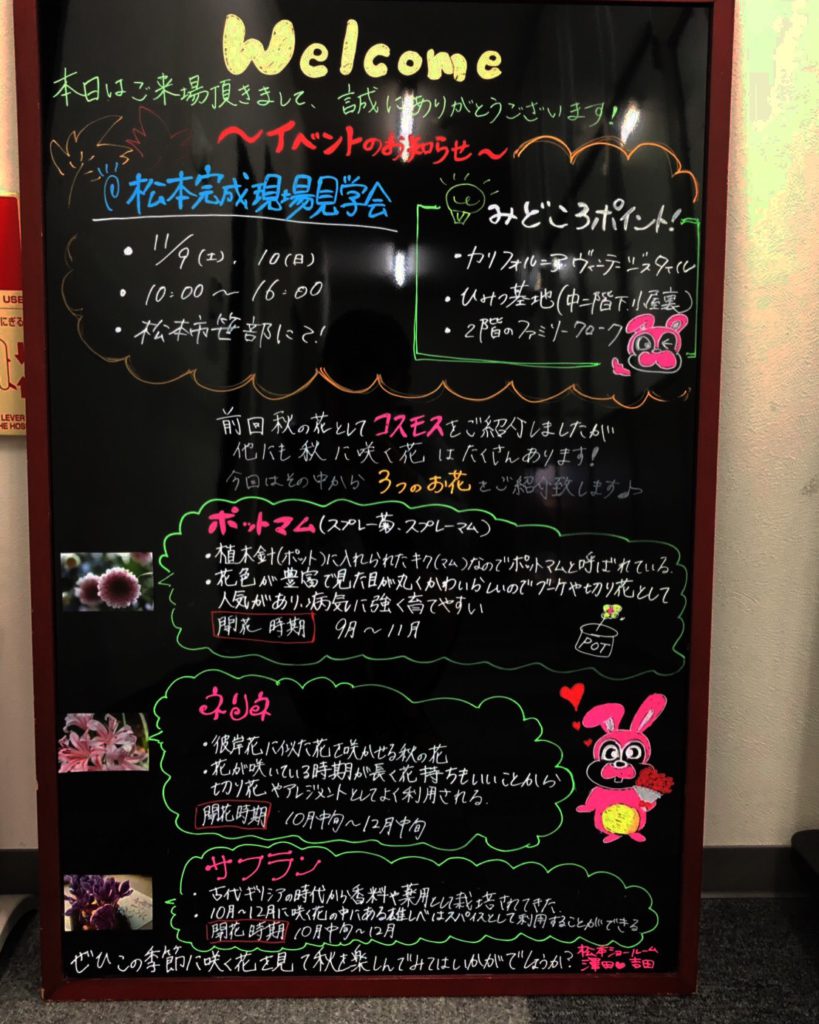 Welcome
本日はご来場頂きまして、誠にありがとうございます!
～イベントのお知らせ～
@松本完成現場見学会
・11/9(土)、10(日)
・10:00～16:00
・松本市笹部にて!
みどころポイント!
・カリフォルニアヴィンテージスタイル
・ひみつ基地(中二階下、小屋裏)
・2階のファミリークローク
前回秋の花としてコスモスをご紹介しましたが
他にも秋に咲く花はたくさんあります!
今回はその中から3つのお花をご紹介致します♪
ポットマム(スプレー菊、スプレーマム)
・植木針(ポット)に入れられたキク(マム)なのでポットマムと呼ばれている.
・花色が豊富で見た目が丸くかわいらしいのでブーケや切り花として
人気があり、病気に強く育てやすい
開花時期 9月～11月
POT
ネリネ
・彼岸花に似た花を咲かせる秋の花
・花が咲いている時期が長く花持ちもいいことから
切り花やアレジメントとしてよく利用される.
開花時期 10月中旬～12月中旬
サフラン
・古代ギリシアの時代から香料や薬用として栽培されてきた
・10月～12月に咲く花の中にある雄しべはスパイスとして利用することができる
開花時期 10月中旬～12月
ぜひこの季節に咲く花を見て秋を楽しんでみてはいかがでしょうか?
松本ショールーム
澤田♥吉田
USE
にぎる
LEVER
HE HOS